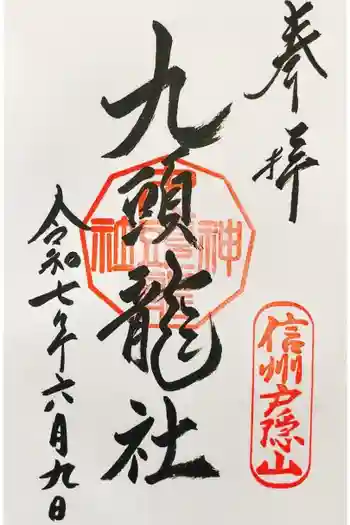 奉拝
信州戸隠山
九頭龍社
令和七年六月九日